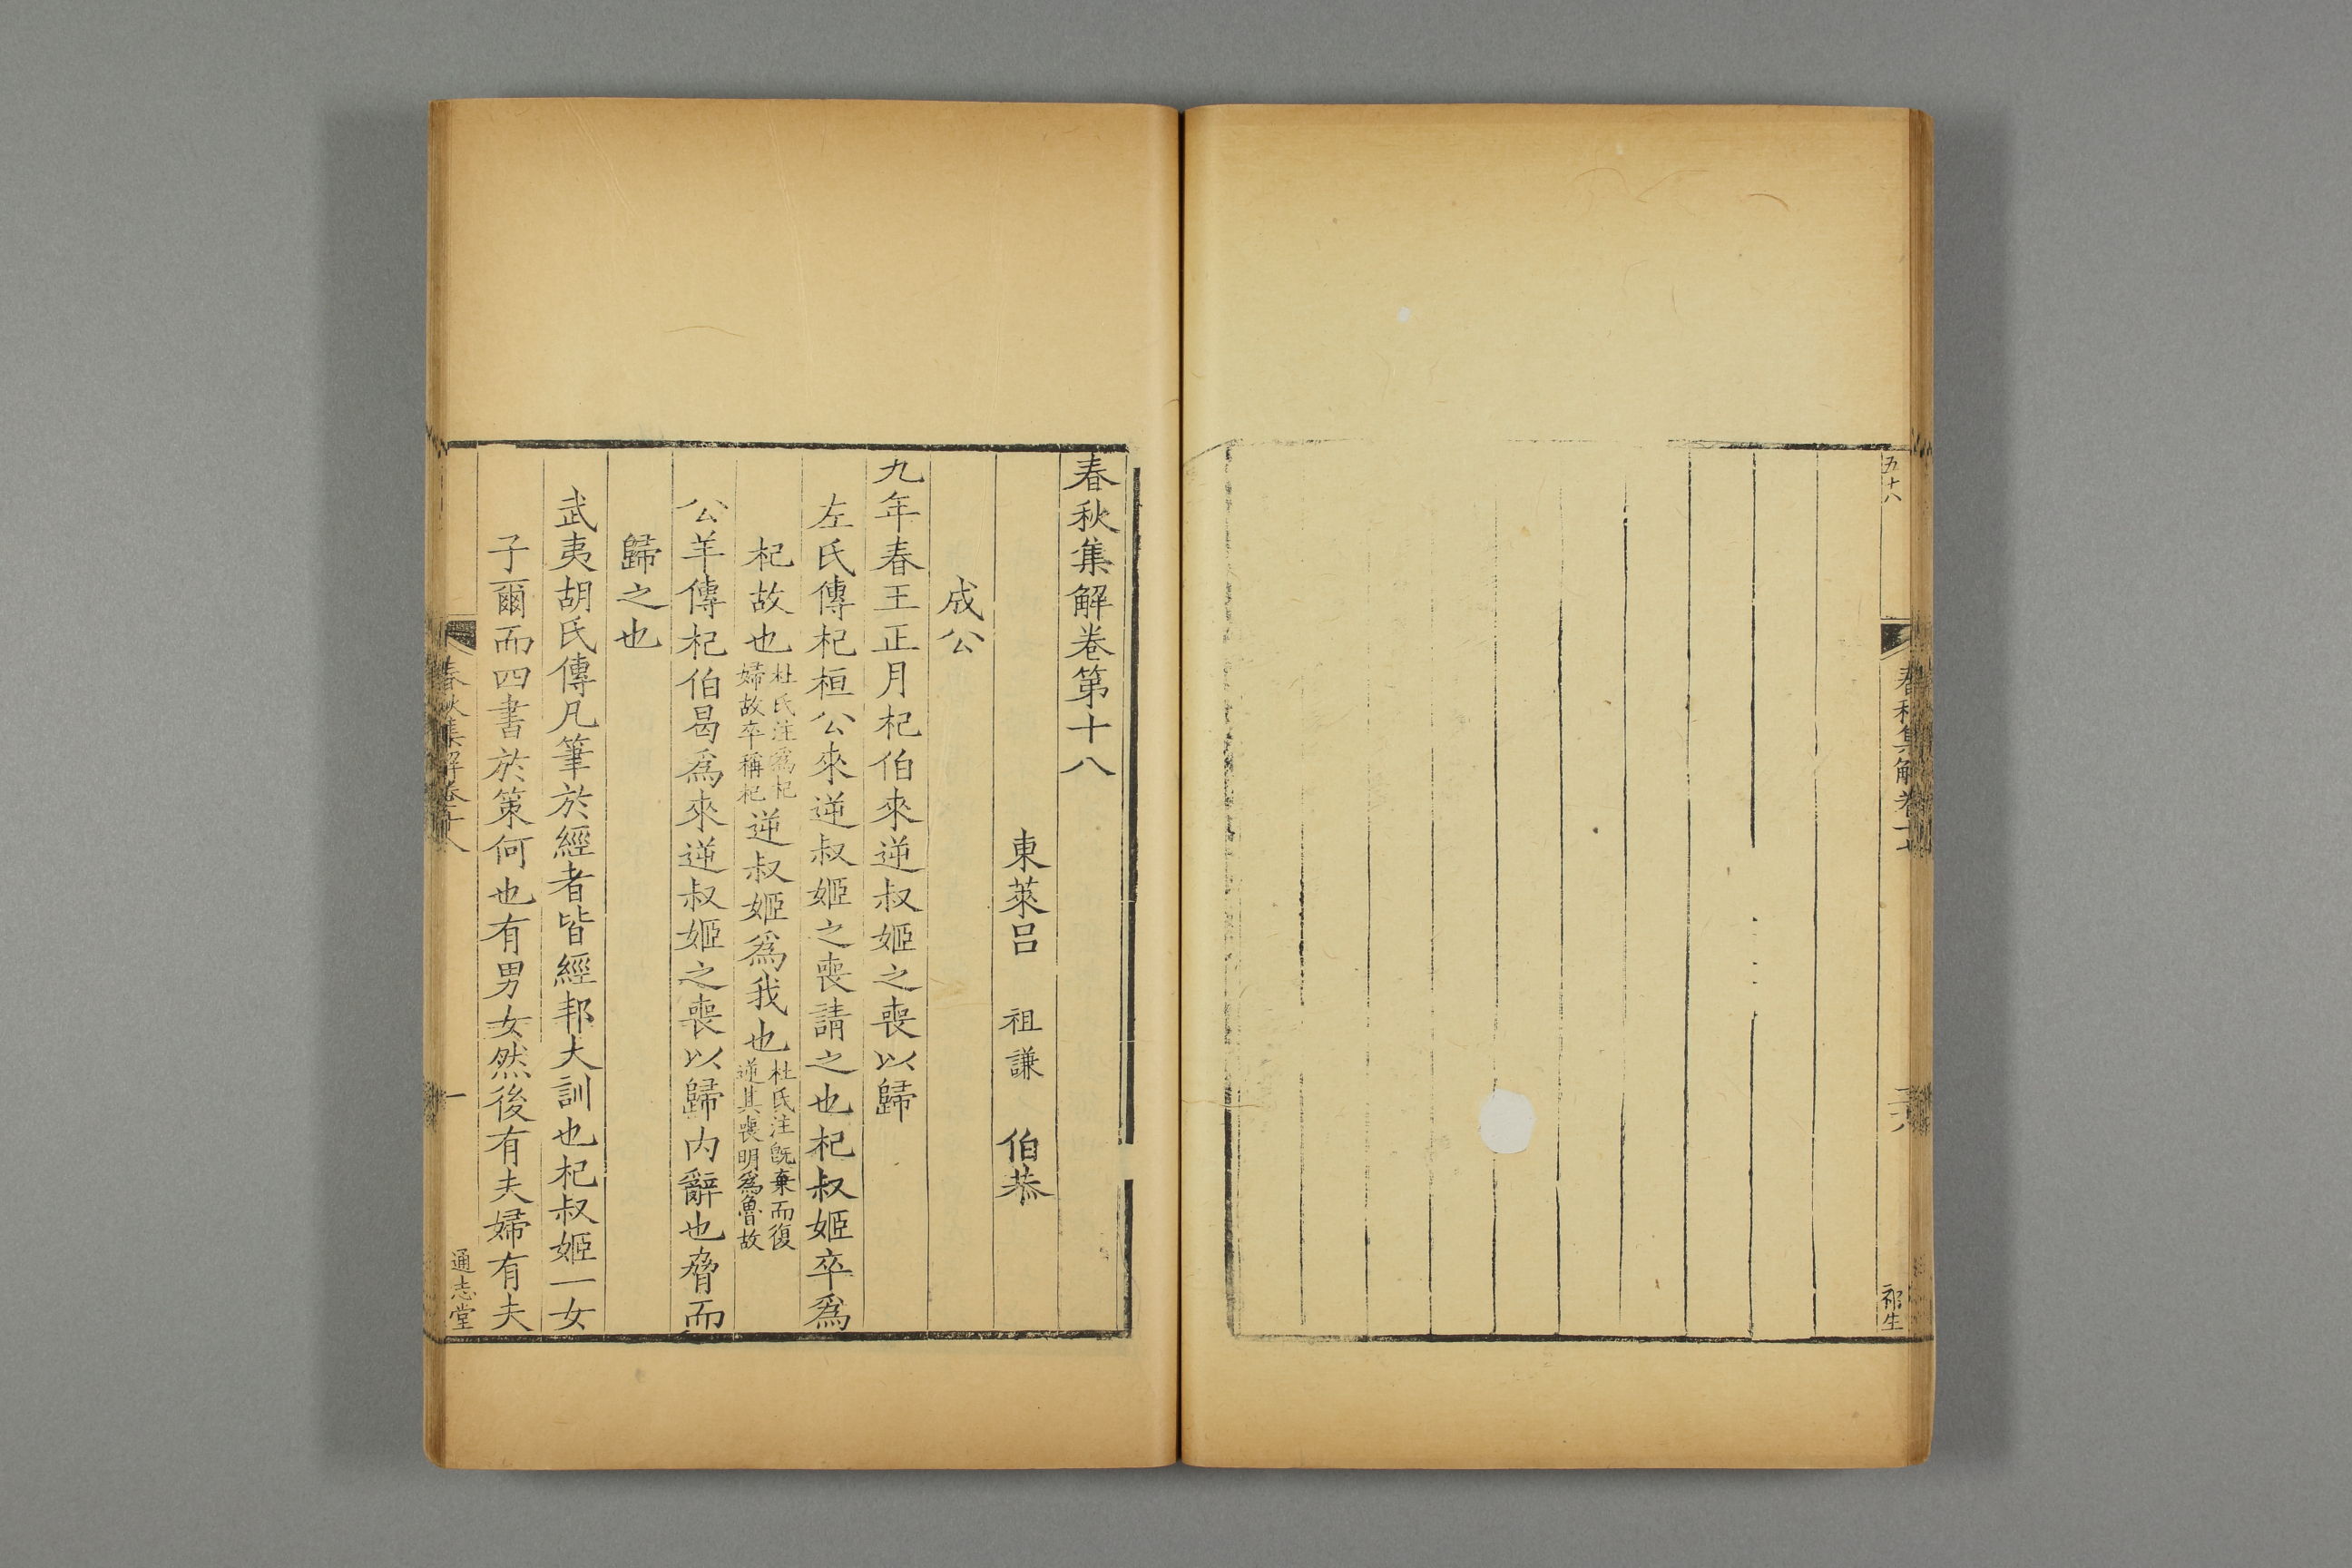 五十八
春秋集解卷十七
祁生
春秋集解卷第十八
東萊呂 祖謙 伯恭
成公
九年春王正月杞伯來逆叔姬之喪以歸
左氏傳杞桓公來逆叔姬之喪請之也杞叔姬卒爲
杞故也杜氏注爲杞婦故卒稱杞逆叔姬爲我也杜氏注旣棄而復逆其喪明爲魯故
公羊傳杞伯曷爲來逆叔姬之喪以歸内辭也脅而
歸之也
武夷胡氏傳凡筆於經者皆經邦大訓也杞叔姬一女
子爾而四書於策何也有男女然後有夫婦有夫
春秋集解卷十八
一
通志堂